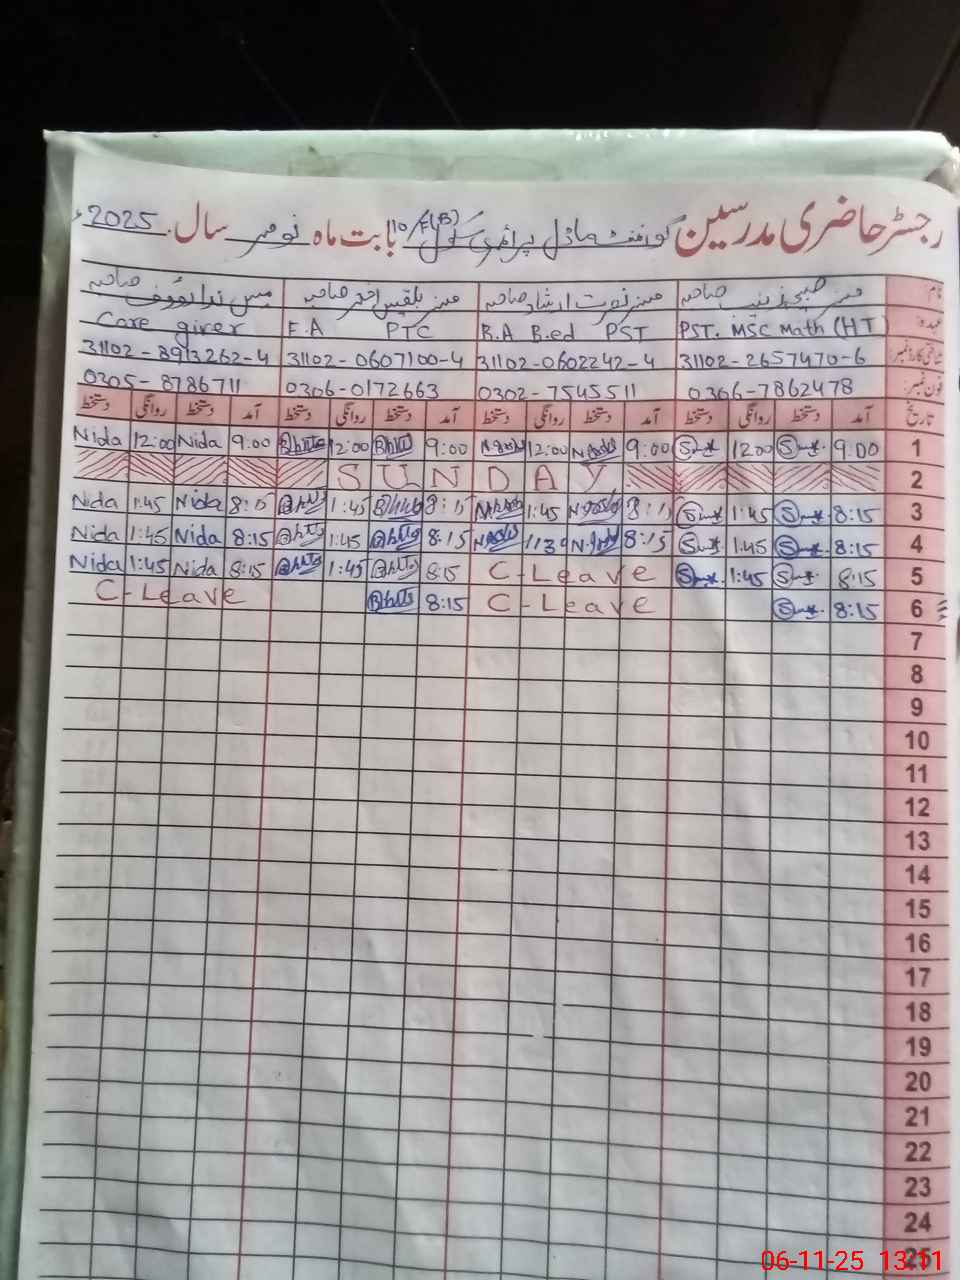 رجسٹر حاضری مدرسین گورنمنٹ ماڈل پرائمری سکول 10/F(B) بابت ماہ نومبر سال 2025ء
نام مسز صبیحہ زینب صاحبہ مسز نزہت ارشاد صاحبہ مسز بلقیس اختر صاحبہ مس ندا رؤف صاحبہ
عہدہ: PST. MSC Math (HT) B.A B.ed PST F.A PTC Care giver
شناختی کارڈ نمبر: 31102-2657470-6 31102-0602242-4 31102-0607100-4 31102-8913262-4
فون نمبر: 0306-7862478 0302-7545511 0306-0172663 0305-8786711
تاریخ آمد دستخط روانگی دستخط آمد دستخط روانگی دستخط آمد دستخط روانگی دستخط آمد دستخط روانگی دستخط
1 9:00 12:00 9:00 12:00 9:00 12:00 9:00 Nida 12:00 Nida
2 SUNDAY
3 8:15 1:45 8:15 1:45 8:15 1:45 8:15 Nida 1:45 Nida
4 8:15 1:45 8:15 8:15 1:45 8:15 Nida 1:45 Nida
5 8:15 1:45 C-Leave 8:15 1:45 8:15 Nida 1:45 Nida
6 8:15 C-Leave 8:15 C-Leave
7
8
9
10
11
12
13
14
15
16
17
18
19
20
21
22
23
24
25
06-11-25 13:11